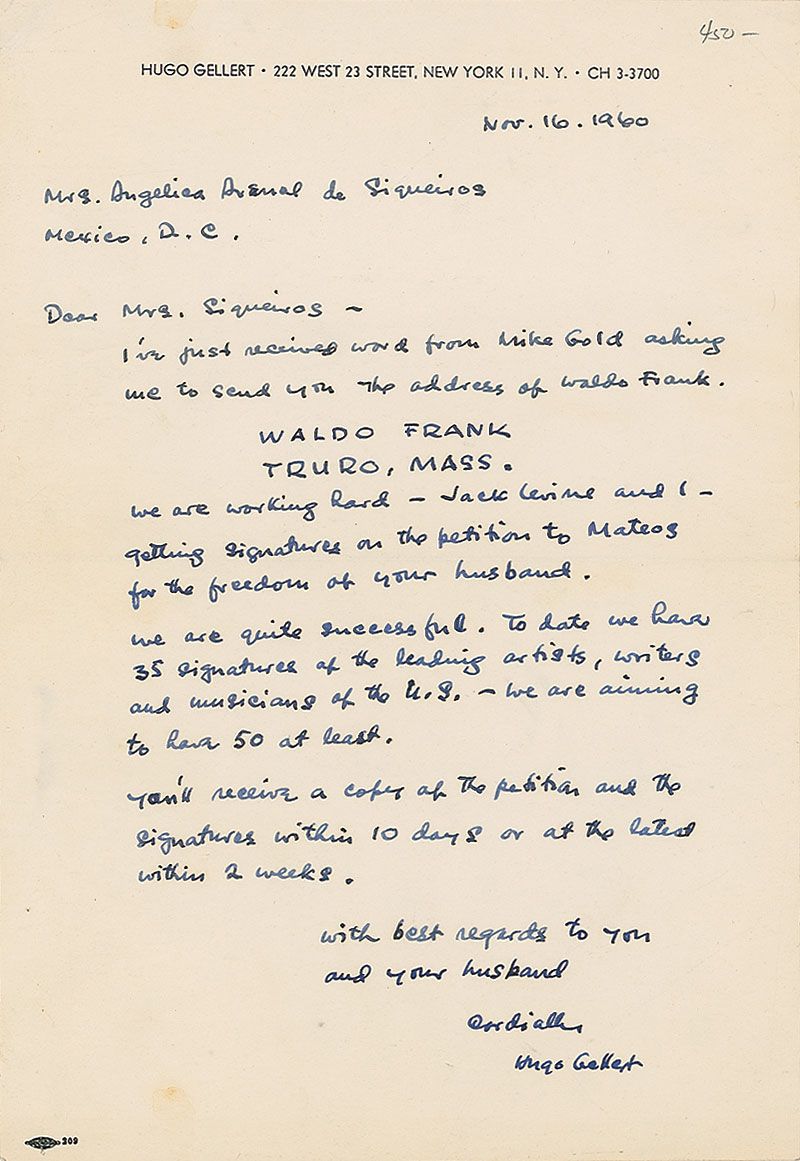 450 —
HUGO GELLERT • 222 WEST 23 STREET, NEW YORK 11, N. Y. • CH 3-3700
Nov. 16. 1960
Mrs. Angelica Arenal de Siqueiros
Mexico, D. C.
Dear Mrs. Siqueiros –
I've just received word from Mike Gold asking
me to send you the address of Waldo Frank.
WALDO FRANK
TRURO, MASS.
we are working hard – Jack Levine and I –
getting signatures on the petition to Mateos
for the freedom of your husband.
we are quite successful. To date we have
35 signatures of the leading artists, writers
and musicians of the U.S. – we are aiming
to have 50 at least.
you'll receive a copy of the petition and the
signatures within 10 days or at the latest
within 2 weeks.
with best regards to you
and your husband
Cordially
Hugo Gellert
209